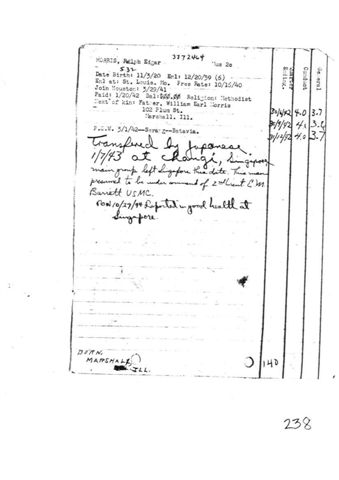 3372464
MORRIS, Ralph Edgar Mus 2c
Date Birth: 11/3/20 Enl: 12/20/39 (6)
Enl at: St. Louis, Mo. Pres Rate: 10/16/40
Join Houston: 3/29/41
Paid: 1/20/42 Bal: Religion: Methodist
Next of kin: Father, William Earl Morris
102 Plum St.
Marshall, Ill.
P.O.W. 3/1/42--Serang--Batavia.
Transfered by Japanese
1/7/43 at Changi, Singapore
main group left Singapore this date. This man
presumed to be under command of 2nd Lieut E.M.
Barrett USMC.
POW 10/27/44 Reported in good health at
Singapore.
BORN,
MARSHALL
ILL.
140
4.0 3.7
4.0 3.7
238